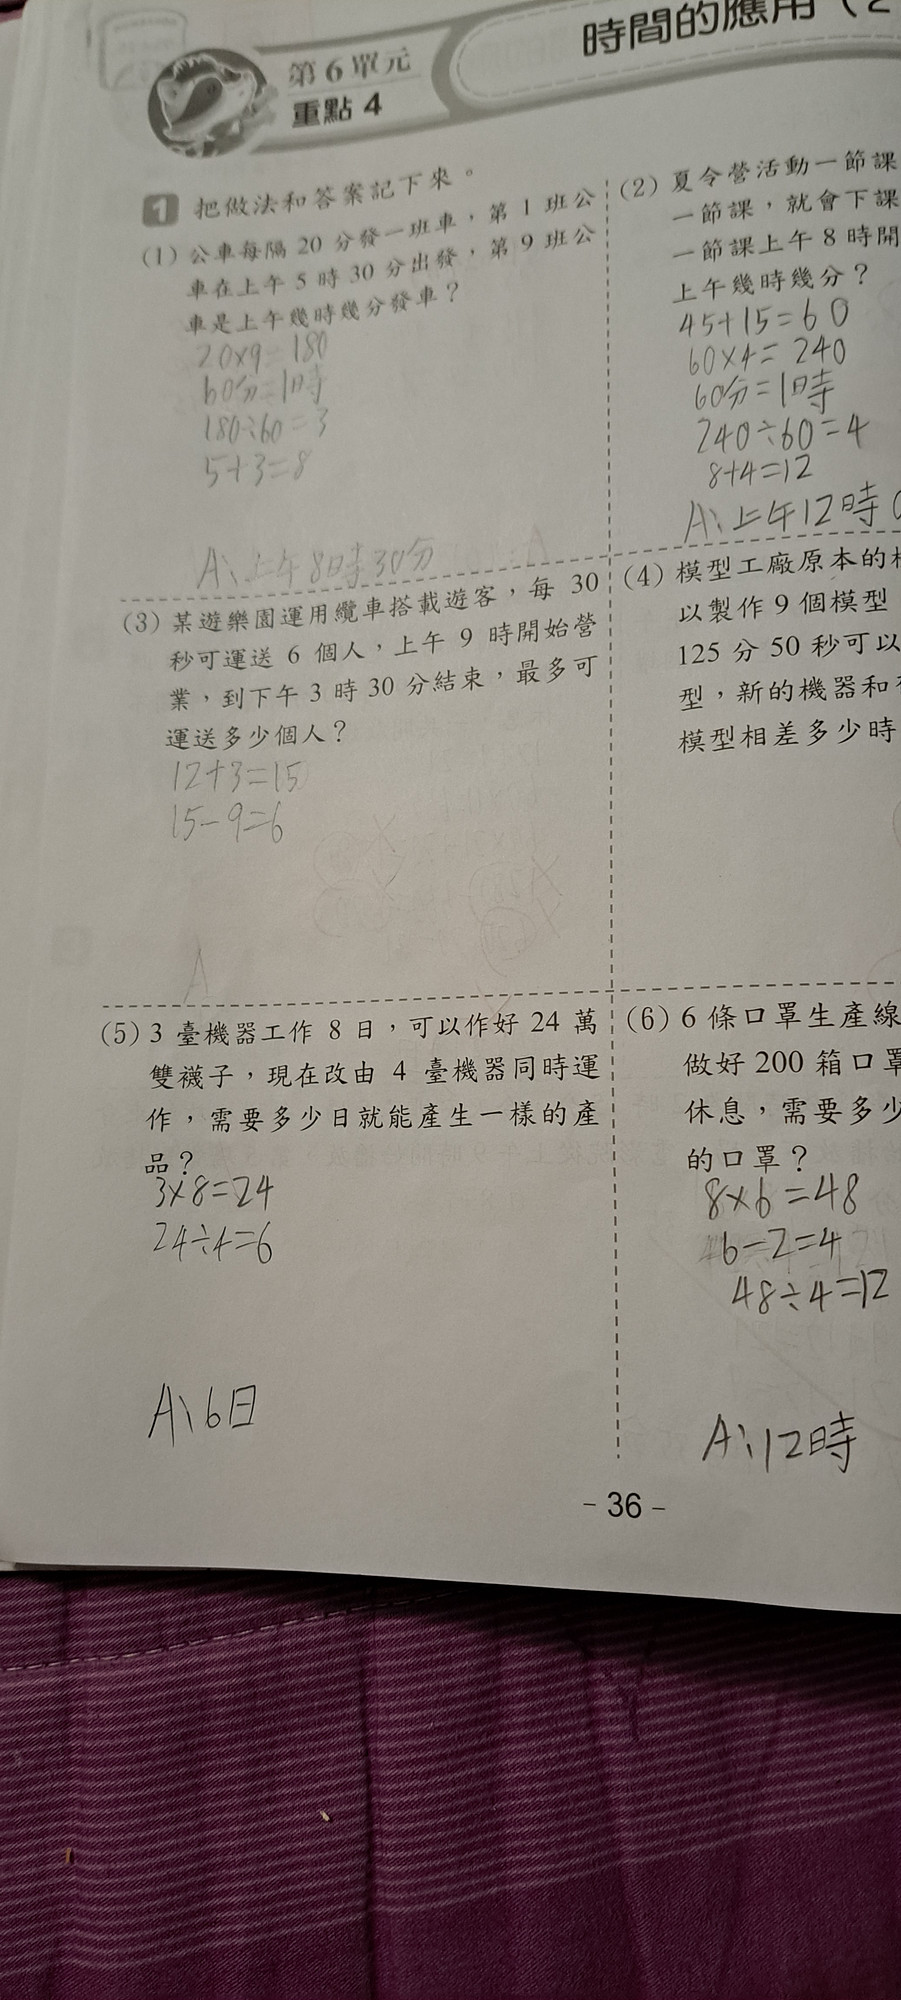 時間的應用（2
第6單元
重點 4
1 把做法和答案記下來。
(1) 公車每隔 20 分發一班車，第 1 班公
車在上午 5 時 30 分出發，第 9 班公
車是上午幾時幾分發車？
20×9=180
60分=1時
180÷60=3
5+3=8
A、上午8時30分
(2) 夏令營活動一節課
一節課，就會下課
一節課上午 8 時開
上午幾時幾分？
45+15=60
60×4=240
60分=1時
240÷60=4
8+4=12
A、上午12時0
(3) 某遊樂園運用纜車搭載遊客，每 30
秒可運送 6 個人，上午 9 時開始營
業，到下午 3 時 30 分結束，最多可
運送多少個人？
12+3=15
15-9=6
A
(4) 模型工廠原本的
以製作 9 個模型
125 分 50 秒可以
型，新的機器和
模型相差多少時
(5) 3 臺機器工作 8 日，可以作好 24 萬
雙襪子，現在改由 4 臺機器同時運
作，需要多少日就能產生一樣的產
品？
3×8=24
24÷4=6
A、6日
(6) 6 條口罩生產線
做好 200 箱口罩
休息，需要多少
的口罩？
8×6=48
6-2=4
48÷4=12
A、12時
- 36 -